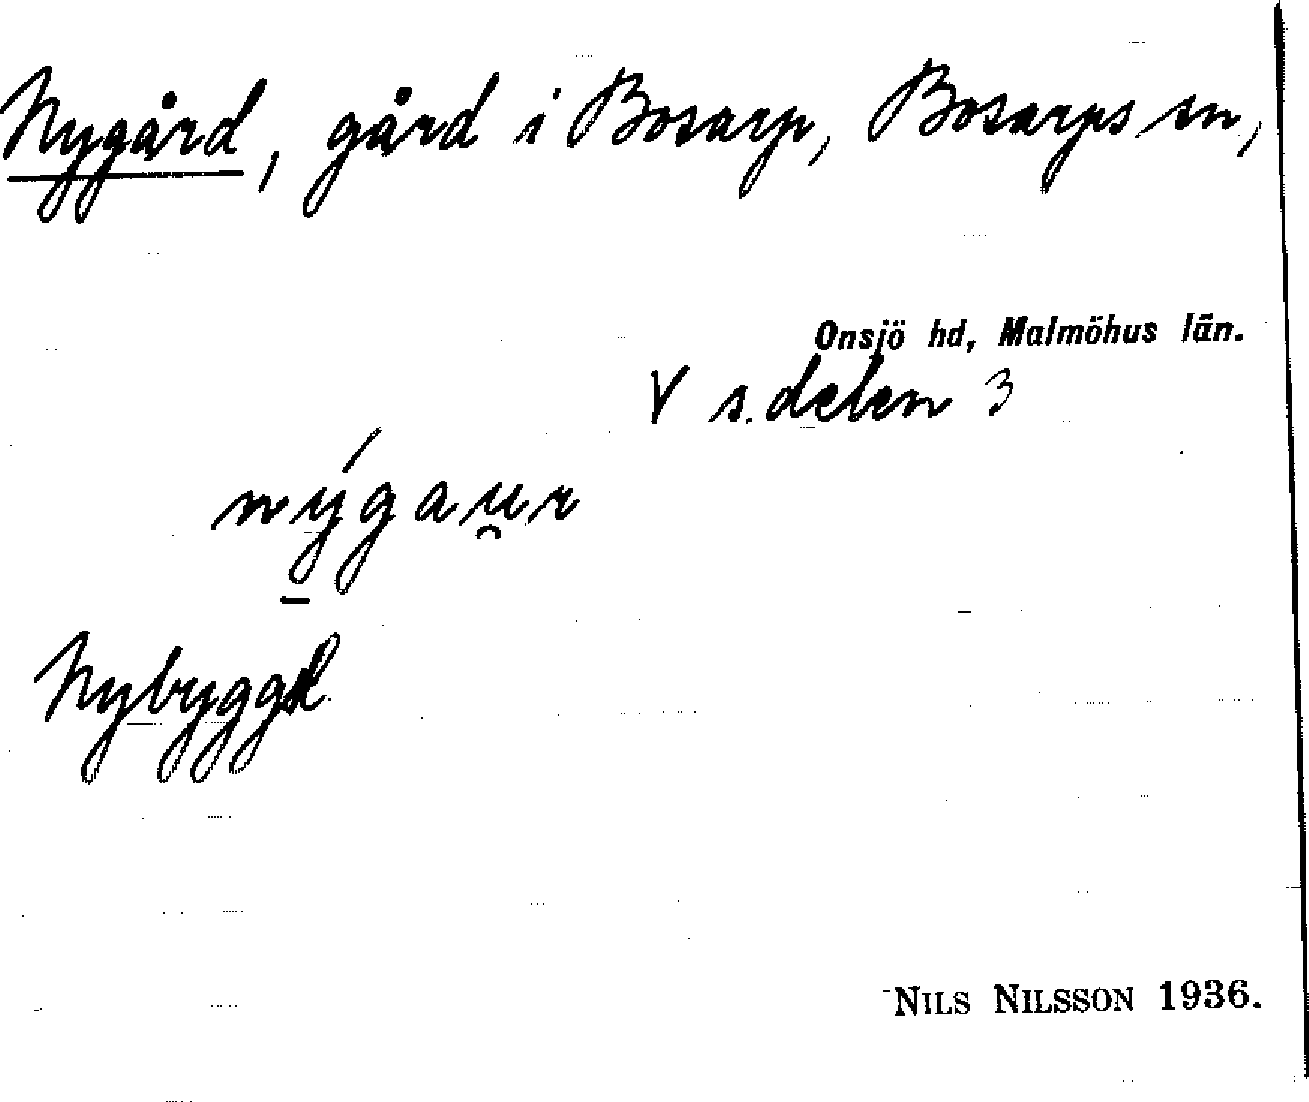 Nygård, gård i Bosarp, Bosarps sn,
Onsjö hd, Malmöhus län.
V s. delen 3
nýgau̯r
Nybyggd
NILS NILSSON 1936.